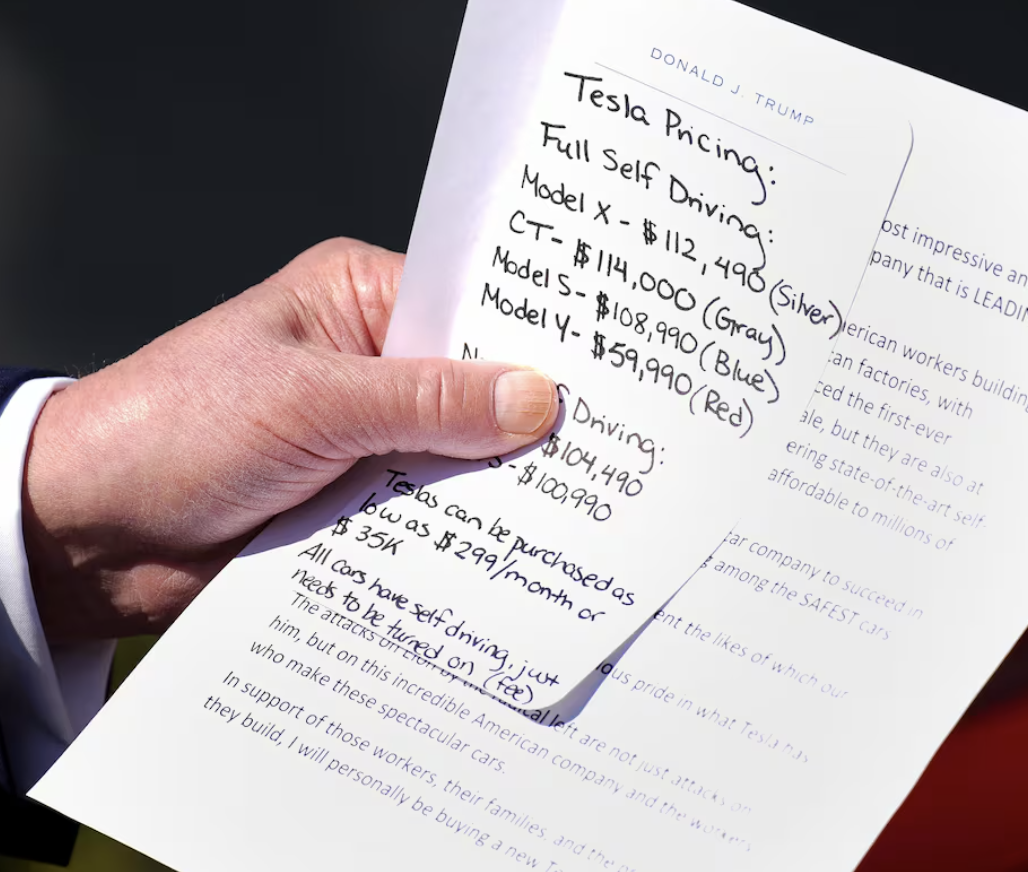 DONALD J. TRUMP
Tesla Pricing:
Full Self Driving:
Model X - $112,490 (Silver)
CT- $114,000 (Gray)
Model S- $108,990 (Blue)
Model Y- $59,990 (Red)
Driving:
$104,490
S - $100,990
Teslas can be purchased as
low as $299/month or
$35K
All cars have self driving, just
needs to be turned on (fee)
ost impressive an
pany that is LEADIN
erican workers building
an factories, with
ced the first-ever
ale, but they are also at
ering state-of-the-art self-
affordable to millions of
ar company to succeed in
among the SAFEST cars
ent the likes of which our
ous pride in what Tesla has
The attacks on Elon by the radical left are not just attacks on
him, but on this incredible American company and the workers
who make these spectacular cars.
In support of those workers, their families, and the
they build, I will personally be buying a new Te